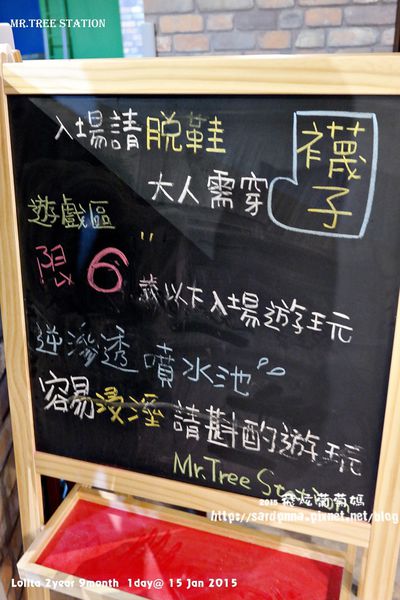 MR.TREE STATION
入場請脱鞋
大人需穿
襪子
遊戲區
限6歲以下入場遊玩
逆滲透噴水池
容易浸溼請斟酌遊玩
Mr.Tree Station
2015 飛炫葡萄媽
https://sardonna.pixnet.net/blog
Lolita 2year 9month 1day@ 15 Jan 2015